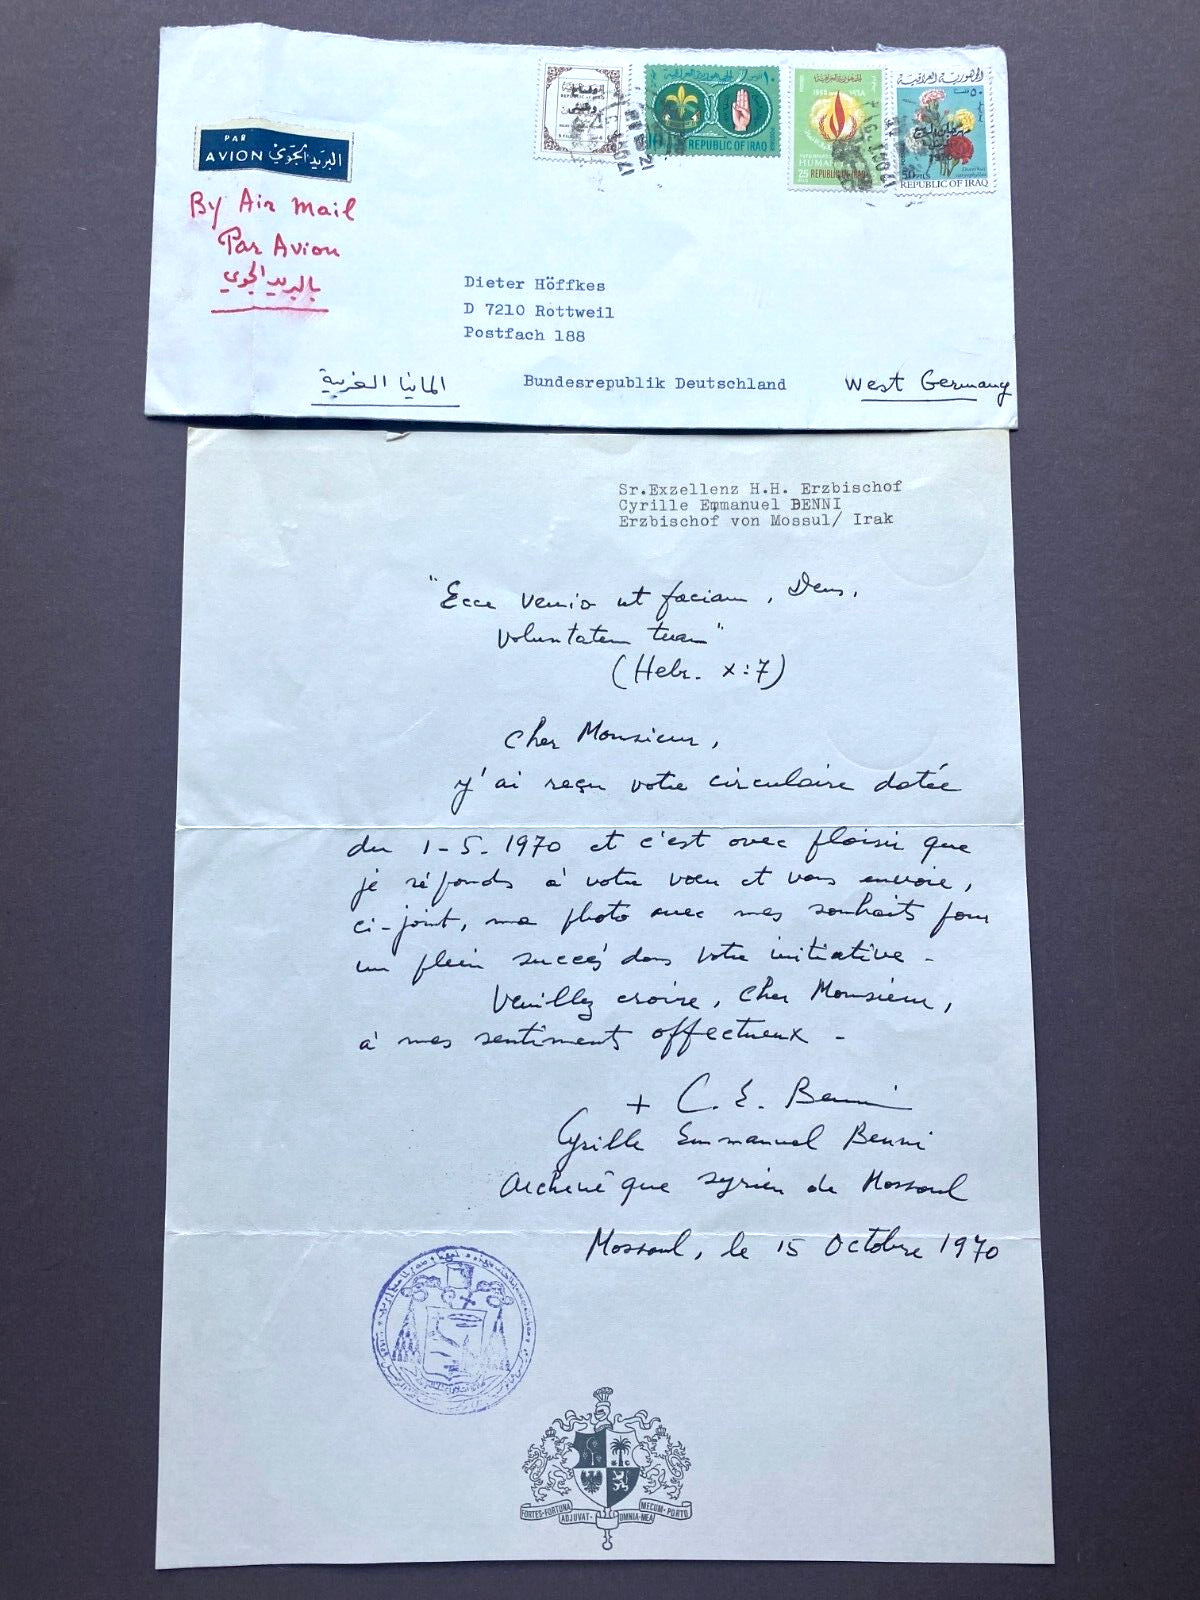 PAR
AVION البريد الجوي
By Air Mail
Par Avion
بالبريد الجوي
الجمهورية العراقية
REPUBLIC OF IRAQ
1968 ١٩٦٨
HUMAN
25
REPUBLIC OF IRAQ
الجمهورية العراقية
٥٠
50
REPUBLIC OF IRAQ
Dieter Höffkes
D 7210 Rottweil
Postfach 188
المانيا الغربية Bundesrepublik Deutschland West Germany
Sr.Exzellenz H.H. Erzbischof
Cyrille Emmanuel BENNI
Erzbischof von Mossul/ Irak
"Ecce venio ut faciam, Deus,
voluntatem tuam"
(Hebr. X:7)
Cher Monsieur,
j'ai reçu votre circulaire datée
du 1-5-1970 et c'est avec plaisir que
je réponds à votre voeu et vous envoie,
ci-joint, ma photo avec mes souhaits pour
un plein succés dans votre initiative -
Veuillez croire, cher Monsieur,
à mes sentiments affectueux -
+ C. E. Benni
Cyrille Emmanuel Benni
Archevêque syrien de Mossoul
Mossoul, le 15 Octobre 1970
FORTES-FORTUNA ADJUVAT- OMNIA-MEA MECUM-PORTO